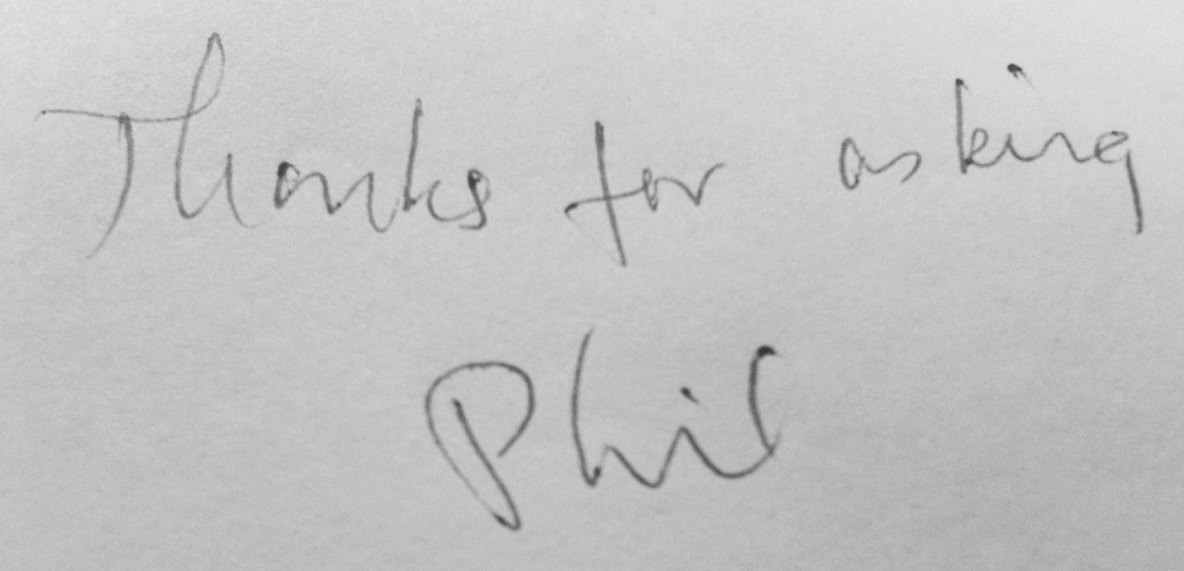 Thanks for asking
Phil